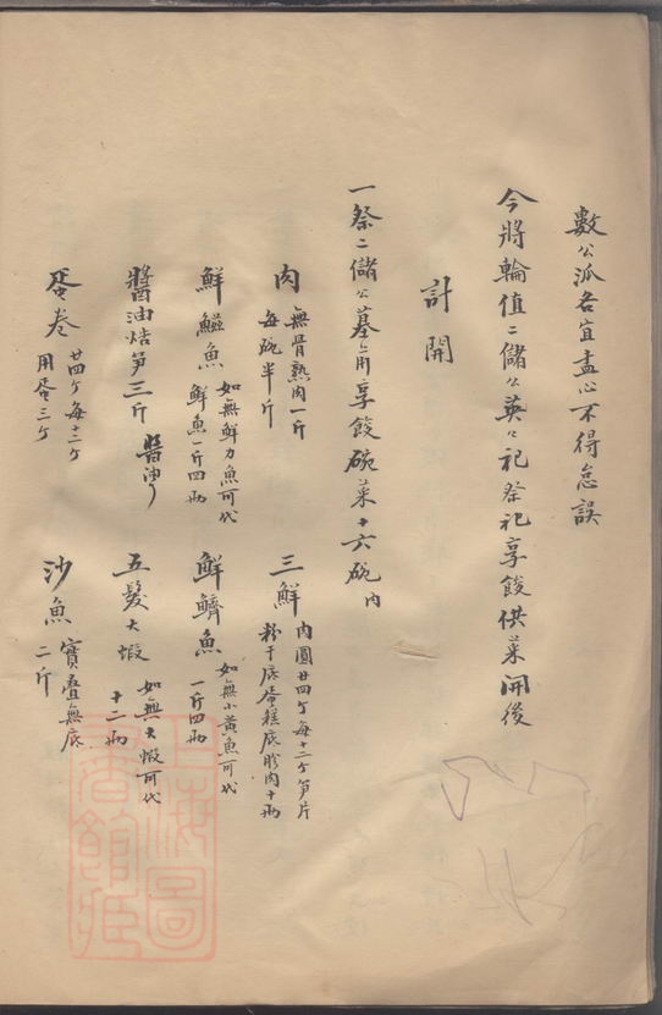 數公派各宜盡心不得怠誤
今將輪值二儲公英公祀祭祀享餕供菜開後
計開
一祭二儲公墓前享餕碗菜十六碗內
肉 無骨熟肉一斤
每碗半斤
三鮮 肉圓廿四个每十二个笋片
粉干底蛋糕底膀肉十兩
鮮鰳魚 如無鮮力魚可代
鮮魚一斤四兩
鮮鱭魚 如無小黃魚可代
一斤四兩
醬油焅笋三斤 醬油
五髮大蝦 如無大蝦可代
十二兩
蛋卷 廿四个每十二个
用蛋三个
沙魚 實疊無底
二斤
上海圖書館藏